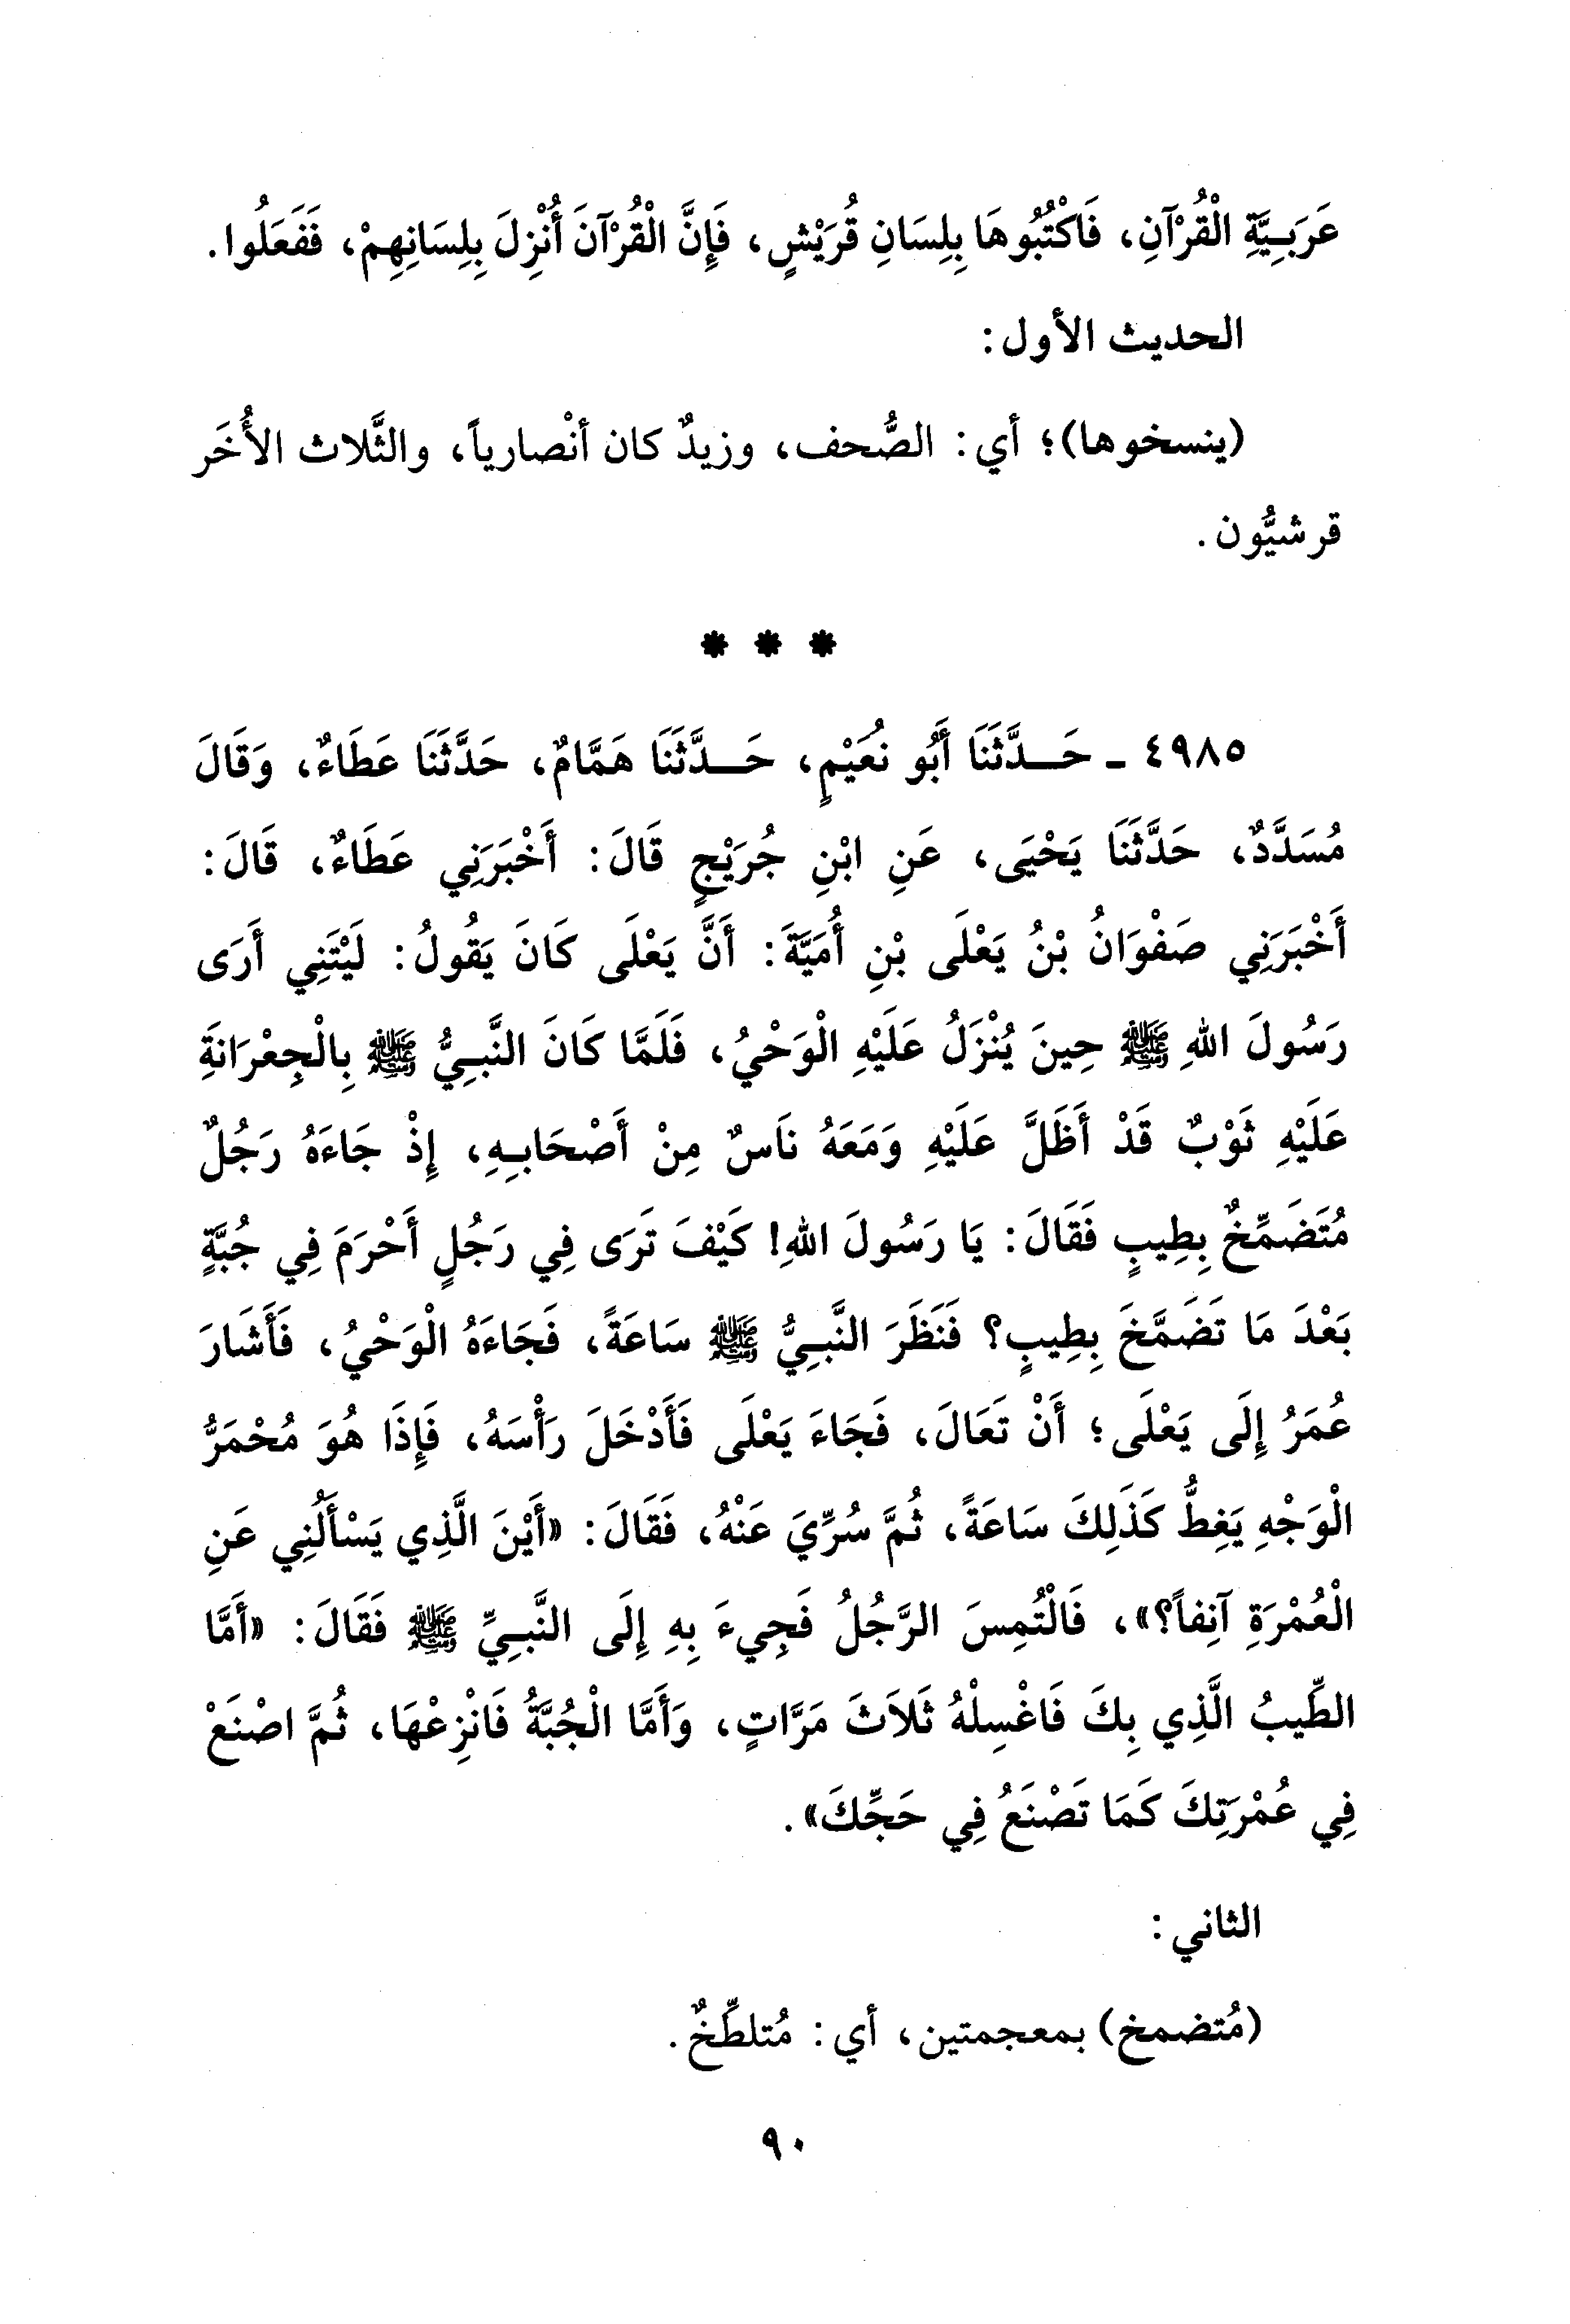 عَرَبـِيَّةِ الْقُرْآنِ، فَاكْتُبُوهَا بِلِسَانِ قُرَيْشٍ، فَإِنَّ الْقُرْآنَ أُنْزِلَ بِلِسَانِهِمْ، فَفَعَلُوا.
الحديث الأول:
(ينسخوها)؛ أي: الصُّحف، وزيدٌ كان أنْصارياً، والثَّلاث الأُخَر
قرشيُّون.
* * *
٤٩٨٥ ـ حَـدَّثَنَا أَبُو نُعَيْمٍ، حَـدَّثَنَا هَمَّامٌ، حَدَّثَنَا عَطَاءٌ، وَقَالَ
مُسَدَّدٌ، حَدَّثَنَا يَحْيَى، عَنِ ابْنِ جُرَيْجٍ قَالَ: أَخْبَرَنِي عَطَاءٌ، قَالَ:
أَخْبَرَنِي صَفْوَانُ بْنُ يَعْلَى بْنِ أُمَيَّةَ: أَنَّ يَعْلَى كَانَ يَقُولُ: لَيْتَنِي أَرَى
رَسُولَ اللهِ ﷺ حِينَ يُنْزَلُ عَلَيْهِ الْوَحْيُ، فَلَمَّا كَانَ النَّبـِيُّ ﷺ بِالْجِعْرَانَةِ
عَلَيْهِ ثَوْبٌ قَدْ أَظَلَّ عَلَيْهِ وَمَعَهُ نَاسٌ مِنْ أَصْحَابـِهِ، إِذْ جَاءَهُ رَجُلٌ
مُتَضَمِّخٌ بِطِيبٍ فَقَالَ: يَا رَسُولَ اللهِ! كَيْفَ تَرَى فِي رَجُلٍ أَحْرَمَ فِي جُبَّةٍ
بَعْدَ مَا تَضَمَّخَ بِطِيبٍ؟ فَنَظَرَ النَّبـِيُّ ﷺ سَاعَةً، فَجَاءَهُ الْوَحْيُ، فَأَشَارَ
عُمَرُ إِلَى يَعْلَى؛ أَنْ تَعَالَ، فَجَاءَ يَعْلَى فَأَدْخَلَ رَأْسَهُ، فَإِذَا هُوَ مُحْمَرُّ
الْوَجْهِ يَغِطُّ كَذَلِكَ سَاعَةً، ثُمَّ سُرِّيَ عَنْهُ، فَقَالَ: «أَيْنَ الَّذِي يَسْأَلُنِي عَنِ
الْعُمْرَةِ آنِفاً؟»، فَالْتُمِسَ الرَّجُلُ فَجِيءَ بِهِ إِلَى النَّبـِيِّ ﷺ فَقَالَ: «أَمَّا
الطِّيبُ الَّذِي بِكَ فَاغْسِلْهُ ثَلاَثَ مَرَّاتٍ، وَأَمَّا الْجُبَّةُ فَانْزِعْهَا، ثُمَّ اصْنَعْ
فِي عُمْرَتِكَ كَمَا تَصْنَعُ فِي حَجِّكَ».
الثاني:
(مُتضمخ) بمعجمتين، أي: مُتلطِّخٌ.
٩٠